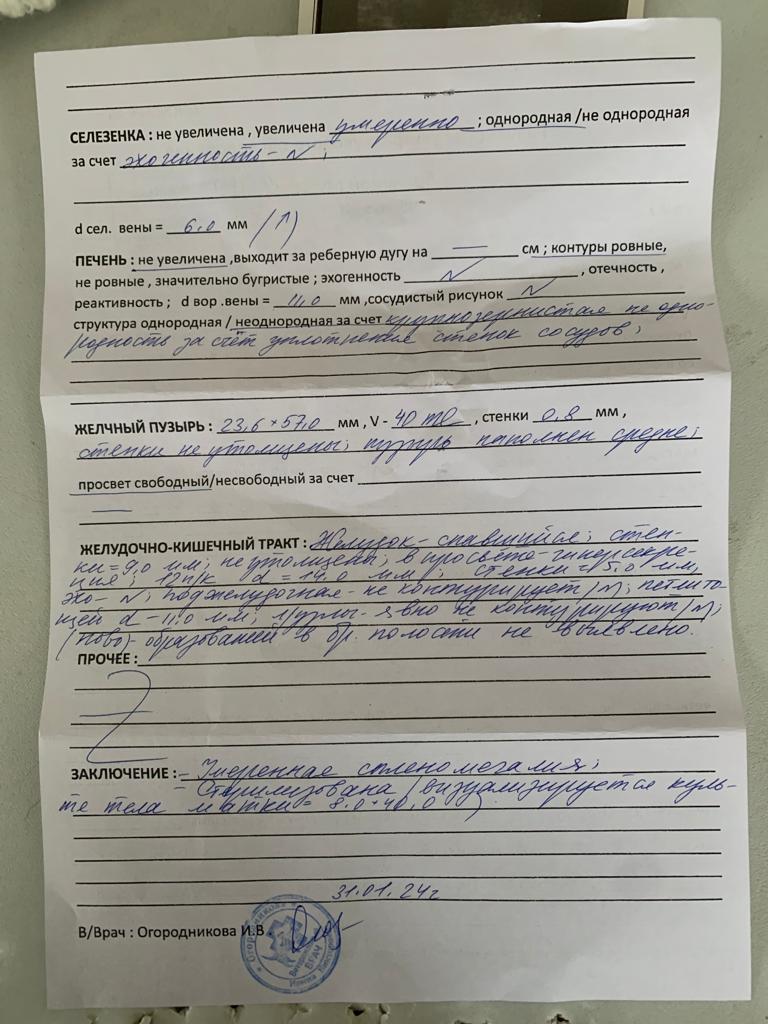 СЕЛЕЗЕНКА : не увеличена , увеличена умеренно ; однородная /не однородная
за счет эхогенность - N ;
d сел. вены = 6,0 мм (↑)
ПЕЧЕНЬ : не увеличена ,выходит за реберную дугу на — см ; контуры ровные,
не ровные , значительно бугристые ; эхогенность N , отечность ,
реактивность ; d вор .вены = 11,0 мм ,сосудистый рисунок N
структура однородная / неоднородная за счет крупнозернистая не одно-
родность за счёт уплотнения стенок сосудов ;
ЖЕЛЧНЫЙ ПУЗЫРЬ : 23,6 × 57,0 мм , V - 40 ml , стенки 0,8 мм ,
стенки не утолщены; пузырь наполнен средне;
просвет свободный/несвободный за счет
—
ЖЕЛУДОЧНО-КИШЕЧНЫЙ ТРАКТ : Желудок - спавшийся; стен-
ки = 9,0 мм; не утолщены; в просвете - гиперсекре-
ция; 12п/к d = 14,0 мм; стенки = 5,0 мм,
эхо - N; поджелудочная - не контурирует /N/; петли то-
щей d - 11,0 мм; л/узлы - явно не контурируют /N/;
(ново)- образований в бр. полости не выявлено.
ПРОЧЕЕ :
ЗАКЛЮЧЕНИЕ : - Умеренная спленомегалия;
- Стерилизована (визуализируется куль-
те тела матки = 8,0 × 40,0 ).
31.01.24г
В/Врач : Огородникова И.В.
Огородникова
ВРАЧ